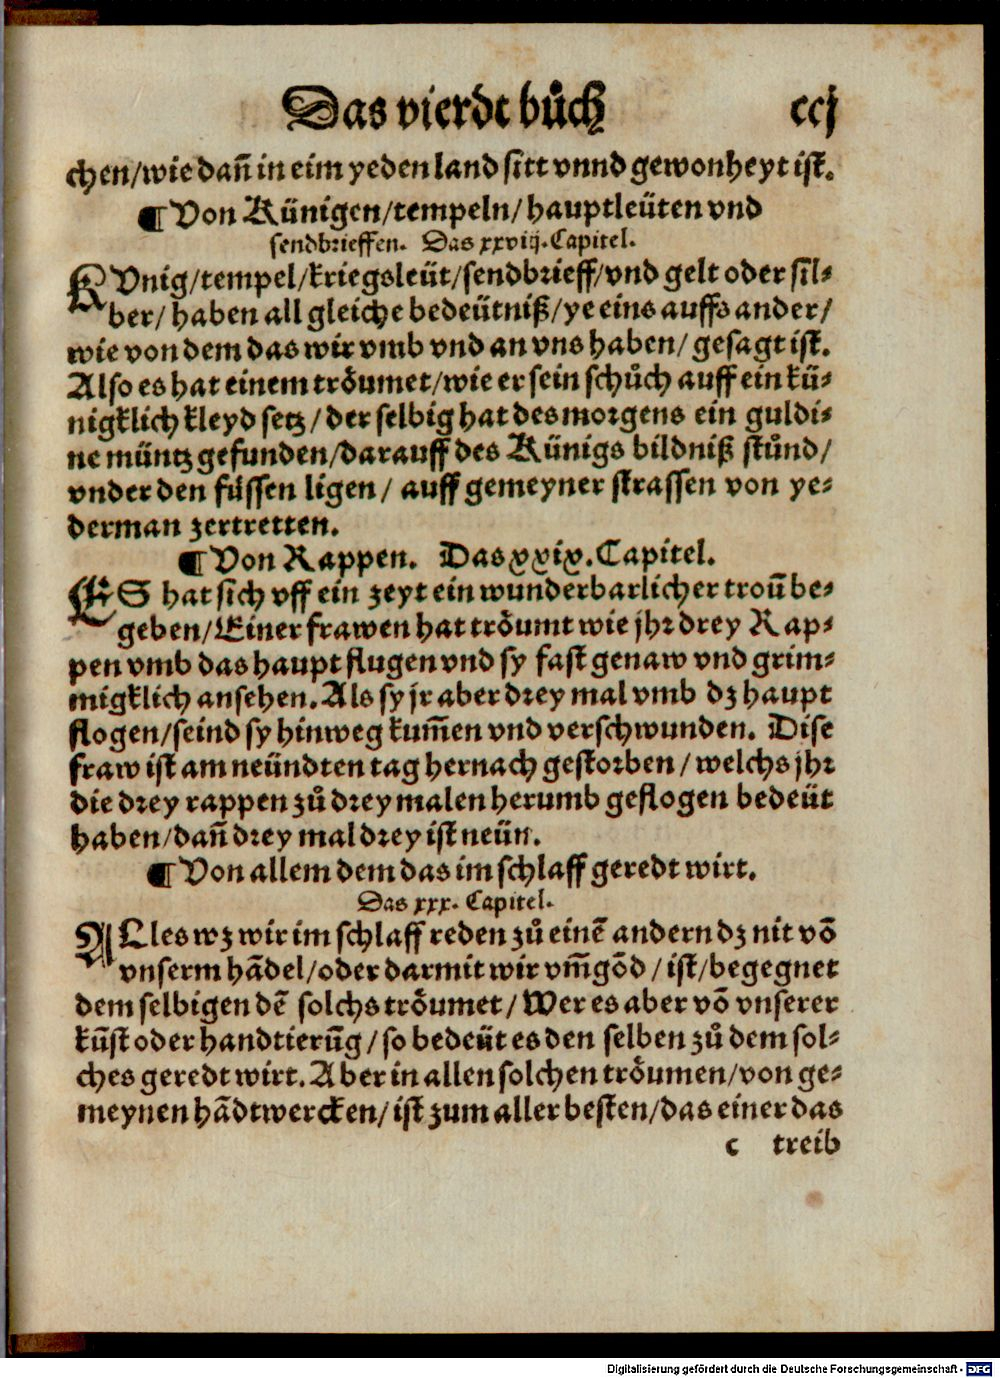 Das vierdt bůch ccj
chen/wie dañ in eim yeden land sitt vnnd gewonheyt ist.
¶ Von Künigen/tempeln/hauptleüten vnd
sendbrieffen. Das xxviij. Capitel.
KVnig/tempel/kriegsleüt/sendbrieff/vnd gelt oder sil-
ber/ haben all gleiche bedeütniß/ye eins auffs ander/
wie von dem das wir vmb vnd an vns haben/ gesagt ist.
Also es hat einem trőumet/wie er sein schůch auff ein kü-
nigklich kleyd setz/der selbig hat des morgens ein guldi-
ne müntz gefunden/darauff des Künigs bildniß stůnd/
vnder den füssen ligen/ auff gemeyner strassen von ye-
derman zertretten.
¶ Von Rappen. Das xxix. Capitel.
ES hat sich vff ein zeyt ein wunderbarlicher troũ be-
geben/Einer frawen hat trőumt wie jhr drey Rap-
pen vmb das haupt flugen vnd sy fast genaw vnd grim-
migklich ansehen. Als sy jr aber drey mal vmb dz haupt
flogen/seind sy hinweg kum̃en vnd verschwunden. Dise
fraw ist am neündten tag hernach gestorben/welchs jhr
die drey rappen zů drey malen herumb geflogen bedeüt
haben/dañ drey mal drey ist neün.
¶ Von allem dem das im schlaff geredt wirt.
Das xxx. Capitel.
ALles wz wir im schlaff reden zů einẽ andern dz nit võ
vnserm hãdel/oder darmit wir vm̃gőd/ist/begegnet
dem selbigen dẽ solchs trőumet/Wer es aber võ vnserer
kũst oder handtierũg/so bedeüt es den selben zů dem sol-
ches geredt wirt. Aber in allen solchen trőumen/von ge-
meynen hãdtwercken/ist zum aller besten/das einer das
c treib
Digitalisierung gefördert durch die Deutsche Forschungsgemeinschaft - DFG